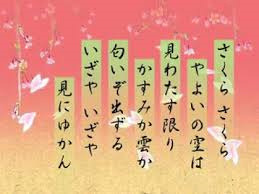 さくら さくら
やよいの空は
見わたす限り
かすみか雲か
匂いぞ出ずる
いざや いざや
見にゆかん